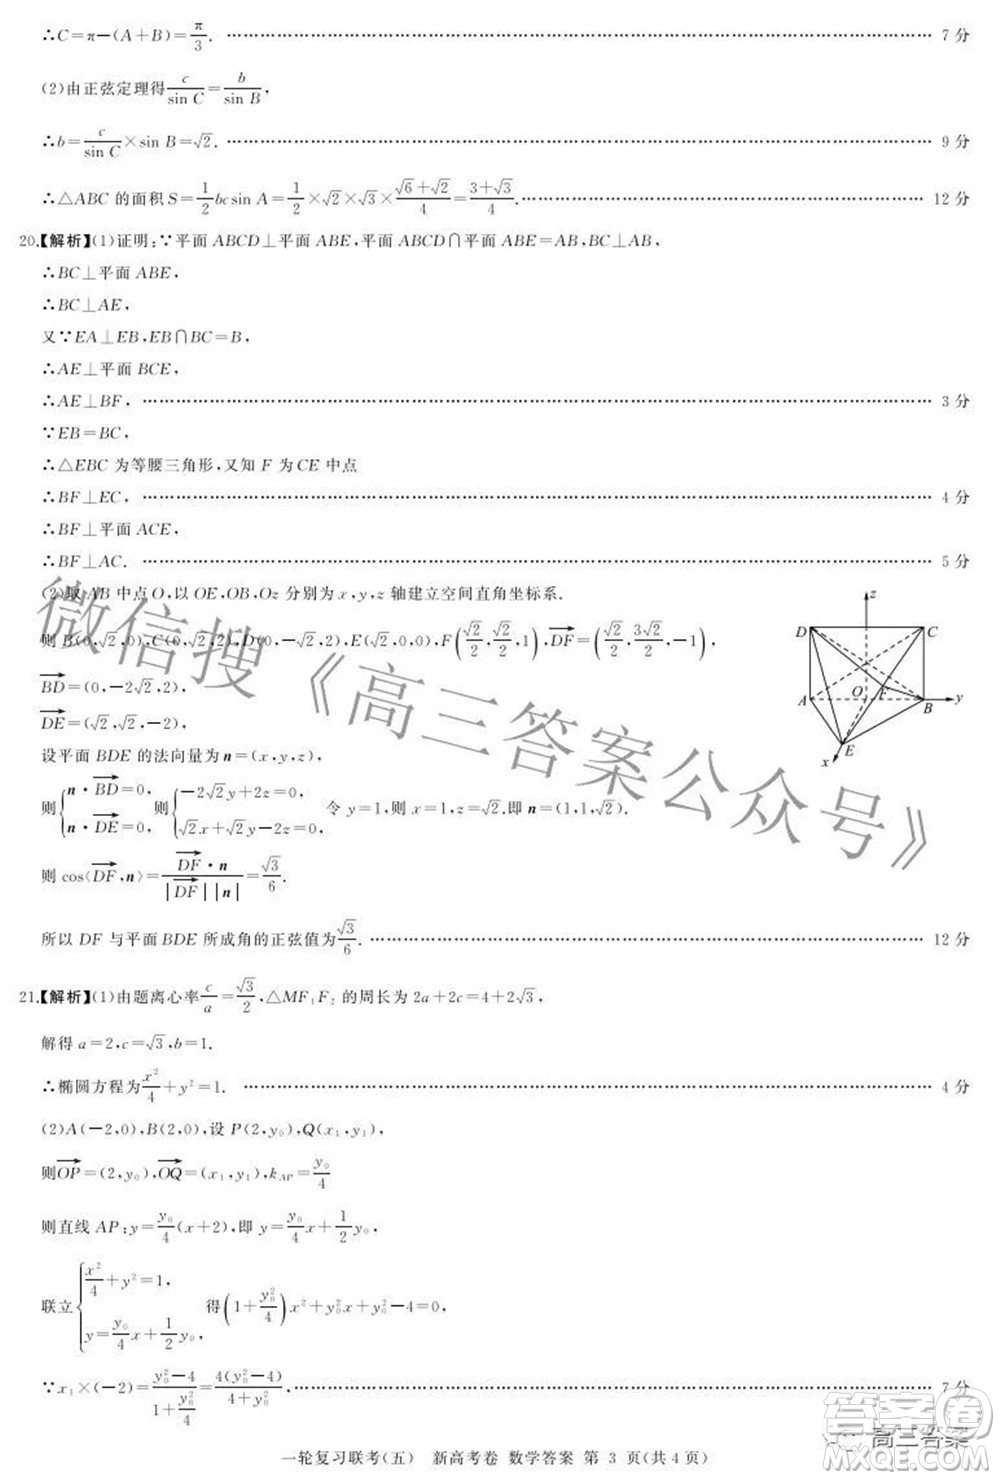 ∴C=π−(A+B)=π/3. …… 7 分
(2)由正弦定理得 c/sin C=b/sin B,
∴b=c/sin C×sin B=√2. …… 9 分
∴△ABC 的面积 S=1/2 bcsin A=1/2×√2×√3×(√6+√2)/4=(3+√3)/4. …… 12 分
20.【解析】(1)证明:∵平面 ABCD⊥平面 ABE,平面 ABCD∩平面 ABE=AB,BC⊥AB,
∴BC⊥平面 ABE,
∴BC⊥AE,
又∵EA⊥EB,EB∩BC=B,
∴AE⊥平面 BCE,
∴AE⊥BF, …… 3 分
∵EB=BC,
∴△EBC 为等腰三角形,又知 F 为 CE 中点
∴BF⊥EC, …… 4 分
∴BF⊥平面 ACE,
∴BF⊥AC. …… 5 分
(2)取 AB 中点 O,以 OE,OB,Oz 分别为 x,y,z 轴建立空间直角坐标系.
则 B(0,√2,0),C(0,√2,2),D(0,−√2,2),E(√2,0,0),F(√2/2,√2/2,1),DF→=(√2/2,3√2/2,−1),
BD→=(0,−2√2,2),
DE→=(√2,√2,−2),
z
D
C
A
O
F
B
y
E
x
设平面 BDE 的法向量为 n=(x,y,z),
则{n·BD→=0, n·DE→=0, 则{−2√2y+2z=0, √2x+√2y−2z=0, 令 y=1,则 x=1,z=√2.即 n=(1,1,√2).
则 cos⟨DF→,n⟩=DF→·n/|DF→||n|=√3/6.
所以 DF 与平面 BDE 所成角的正弦值为√3/6. …… 12 分
21.【解析】(1)由题离心率 c/a=√3/2,△MF₁F₂ 的周长为 2a+2c=4+2√3,
解得 a=2,c=√3,b=1.
∴椭圆方程为 x²/4+y²=1. …… 4 分
(2)A(−2,0),B(2,0),设 P(2,y₀),Q(x₁,y₁),
则OP→=(2,y₀),OQ→=(x₁,y₁),k_AP=y₀/4
则直线 AP:y=y₀/4(x+2),即 y=y₀/4 x+1/2 y₀,
联立{x²/4+y²=1, y=y₀/4 x+1/2 y₀, 得(1+y₀²/4)x²+y₀²x+y₀²−4=0,
∵x₁×(−2)=(y₀²−4)/(1+y₀²/4)=4(y₀²−4)/(4+y₀²), …… 7 分
一轮复习联考(五) 新高考卷 数学答案 第 3 页(共 4 页)
微信搜《高三答案公众号》
高三答案
答案圈
MXQE.COM